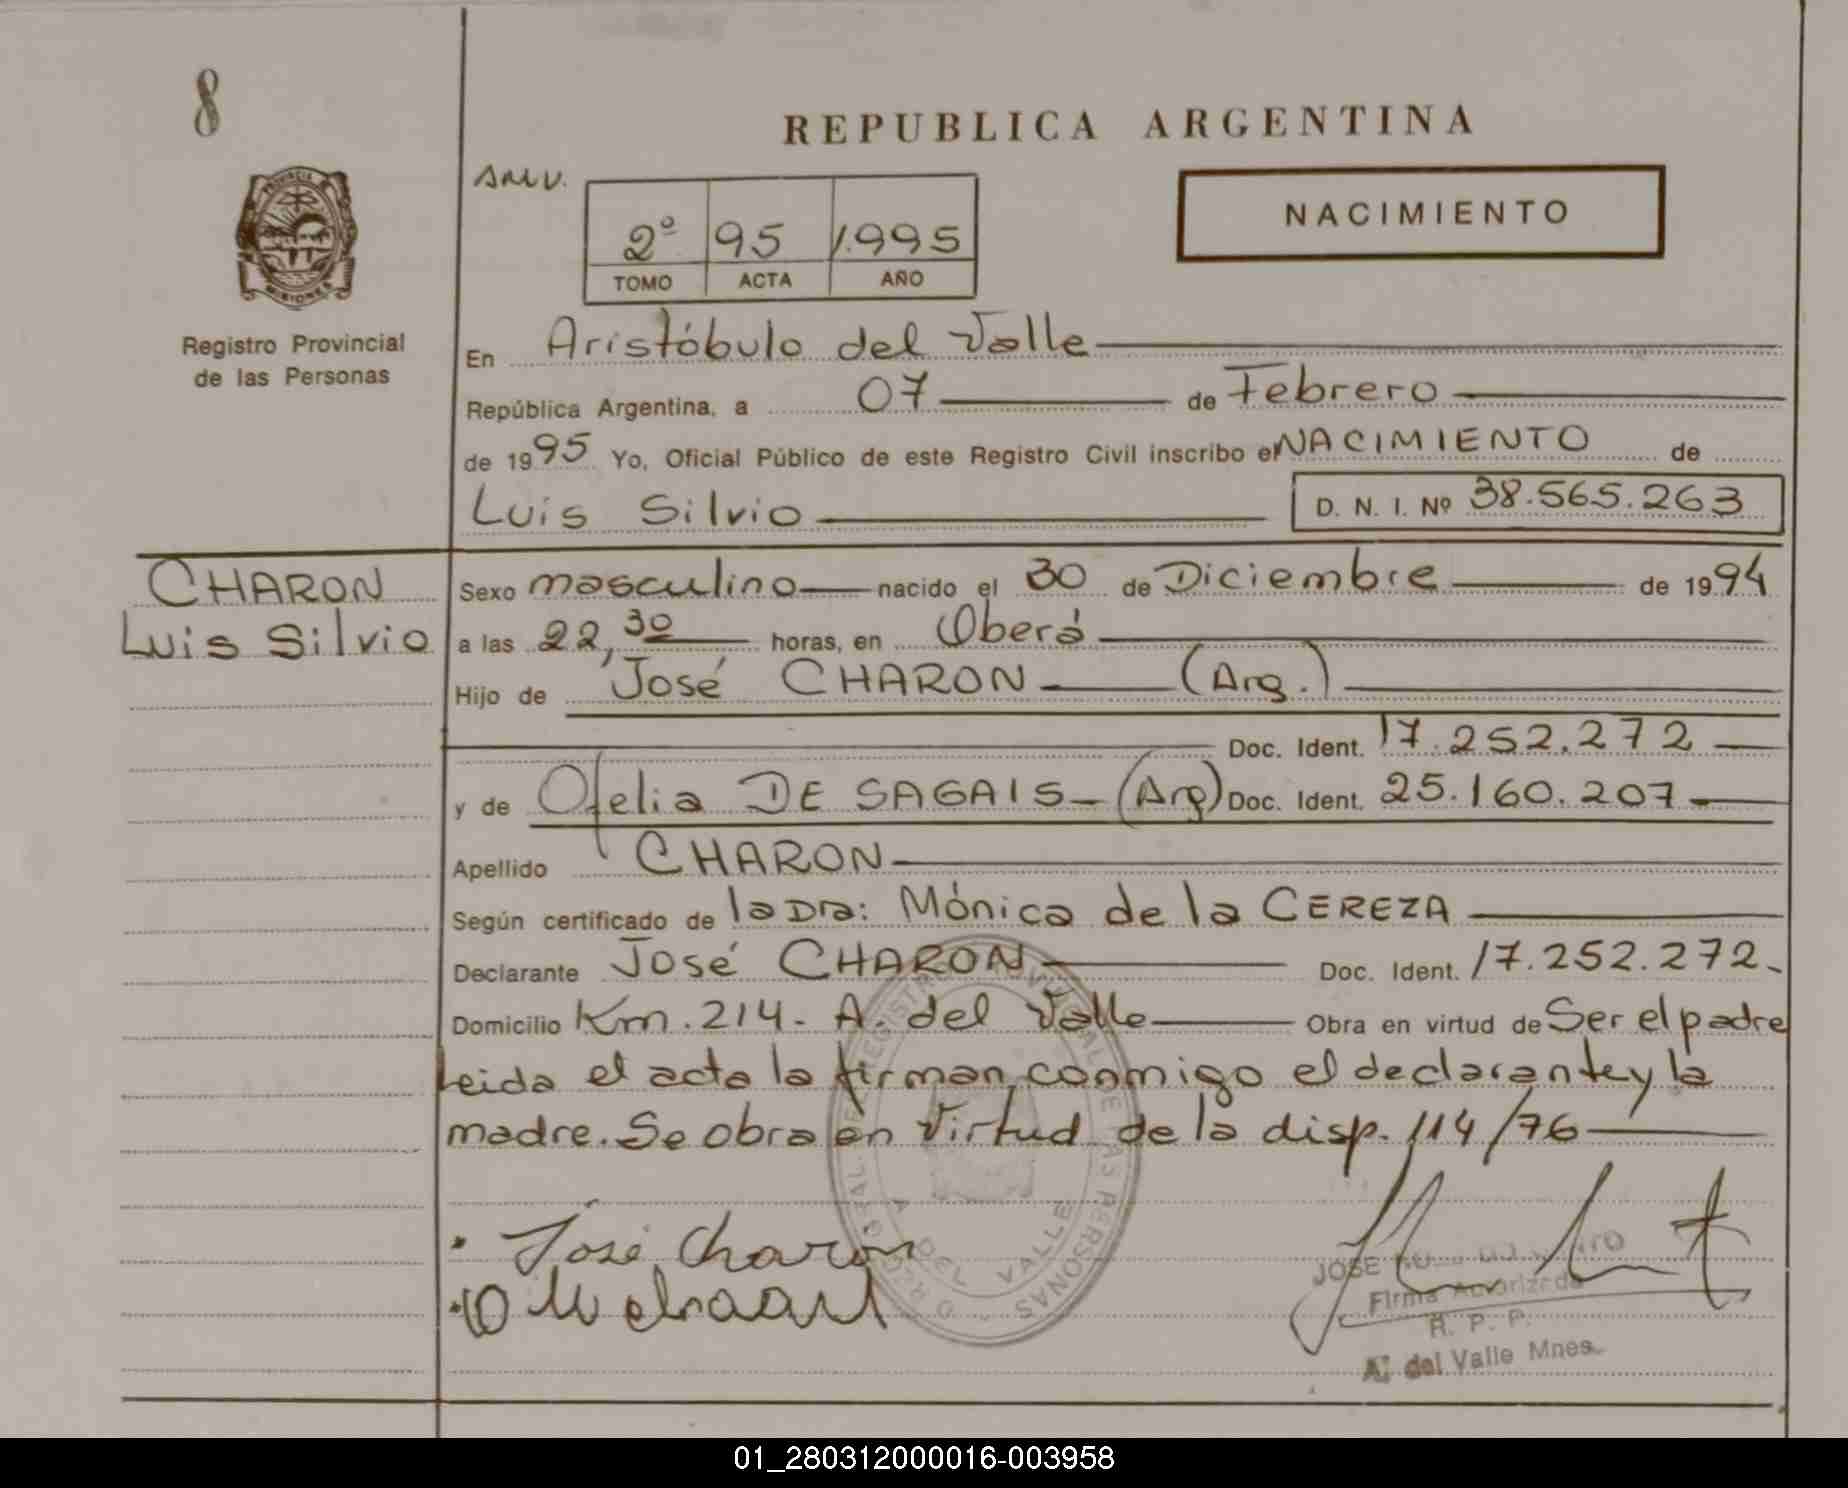 8
REPUBLICA ARGENTINA
PROVINCIA
MISIONES
2º 95 1.995
TOMO ACTA AÑO
NACIMIENTO
Registro Provincial
de las Personas
En Aristóbulo del Valle
República Argentina, a 07 de Febrero
de 1995 Yo, Oficial Público de este Registro Civil inscribo el NACIMIENTO de
Luis Silvio D. N. I. Nº 38.565.263
CHARON
Luis Silvio
Sexo masculino nacido el 30 de Diciembre de 1994
a las 22,30 horas, en Oberá
Hijo de José CHARON (Arg.)
Doc. Ident. 17.252.272
y de Ofelia DE SAGAIS (Arg) Doc. Ident. 25.160.207
Apellido CHARON
Según certificado de la Dra: Mónica de la CEREZA
Declarante José CHARON Doc. Ident. 17.252.272.
Domicilio Km. 214. A. del Valle Obra en virtud de Ser el padre
Leida el acta la firman conmigo el declarante y la
madre. Se obra en Virtud de la disp. 114/76
José Charon
JOSE
Firma Autorizada
R. P. P.
A. del Valle Mnes.
A DEL VALLE
01_280312000016-003958